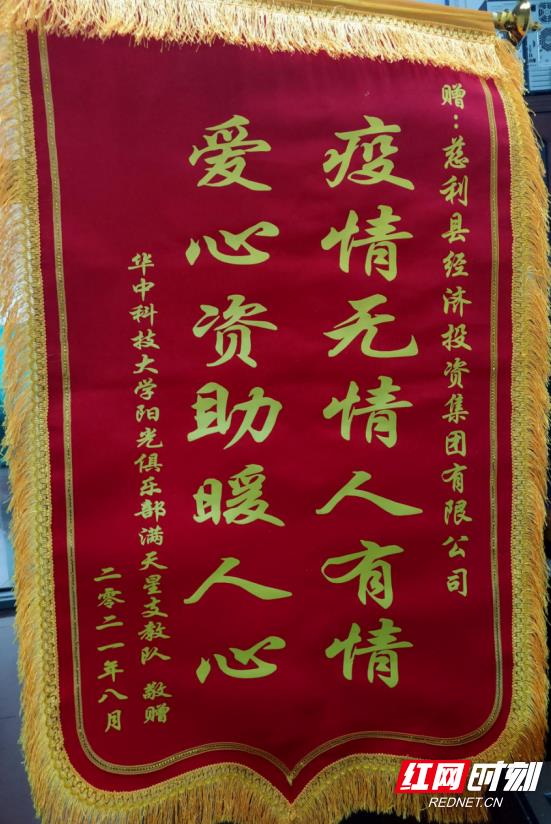 赠：慈利县经济投资集团有限公司
疫情无情人有情
爱心资助暖人心
华中科技大学阳光俱乐部满天星支教队 敬赠
二零二一年八月
红网时刻
REDNET.CN